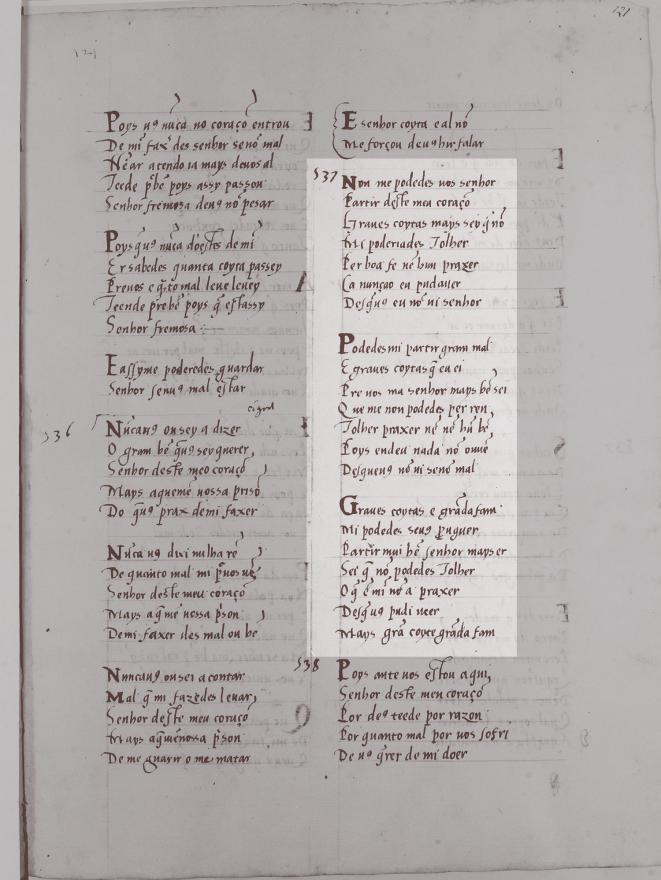 121
Poys uꝯ nũca no coraçõ entrou
De mĩ faxʼ des senhor senõ mal
Nẽ ar atendo ia mays devos al
Teede pʼ bẽ poys assy passou
Senhor fremosa deuꝯ nõ pesar
Poys q̃ uꝯ nũca doestes de mĩ
Er sabedes quanta coyta passey
Por uos e q̃ to mal leue leuey
Teende pʼ bẽ poys q̃ est assy
Senhor fremosa
E assy me poderedes guardar
Senhor senuꝯ mal estar
536
Nũca uꝯ ousey a dizer
O gram bẽ q̃ uꝯ sey querer
Senhor deste meo coraçõ
Mays aquemẽ uossa prisõ
Do q̃ uꝯ prax de mi faxer
Nũca uꝯ dixi nulha rẽ
De quanto mal mi pʼ uos uẽ
Senhor deste meu coraçõ
Mays aq̃ mẽ uossa pʼson
De mi faxer des mal ou bẽ
Nuncauꝯ ousei a contar
Mal q̃ mi fazedes leuar
Senhor deste meu coraçõ
Mays aq̃ mẽ uossa pʼson
De me guarir o me matar
E senhor coyta e al nõ
Me forçou de uꝯ hir falar
537
Non me podedes uos senhor
Partir deste meu coraçõ
Graues coytas mays sey q̃ nõ
Mi poderiades Tolher
Per boa fe nẽ hun prazer
Ca nunca o eu pud auer
Des q̃ uꝯ eu nõ ui senhor
Podedes mi partir gram mal
E graues coytas q̃ eu ei
Por uos ma senhor mays bẽ sei
Que me non podedes per ren
Tolher praxer nẽ nẽ hũ bẽ
Poys end eu nada nõ ouue
Desq̃ ueuꝯ nõ ui senõ mal
Graues coytas e grãd afam
Mi podedes se uꝯ puguer
Partir mui bẽ senhor mays er
Sei q̃ nõ podedes Tolher
O q̃ ẽ mi nõ a praxer
Des q̃ uꝯ pudi ueer
Mays grã coyte grãd afam
538
Poys ante uos estou aqui
Senhor deste meu coraçõ
Por deꝯ teede por razon
Por quanto mal por uos sofri
De uꝯ q̃rer de mi doer